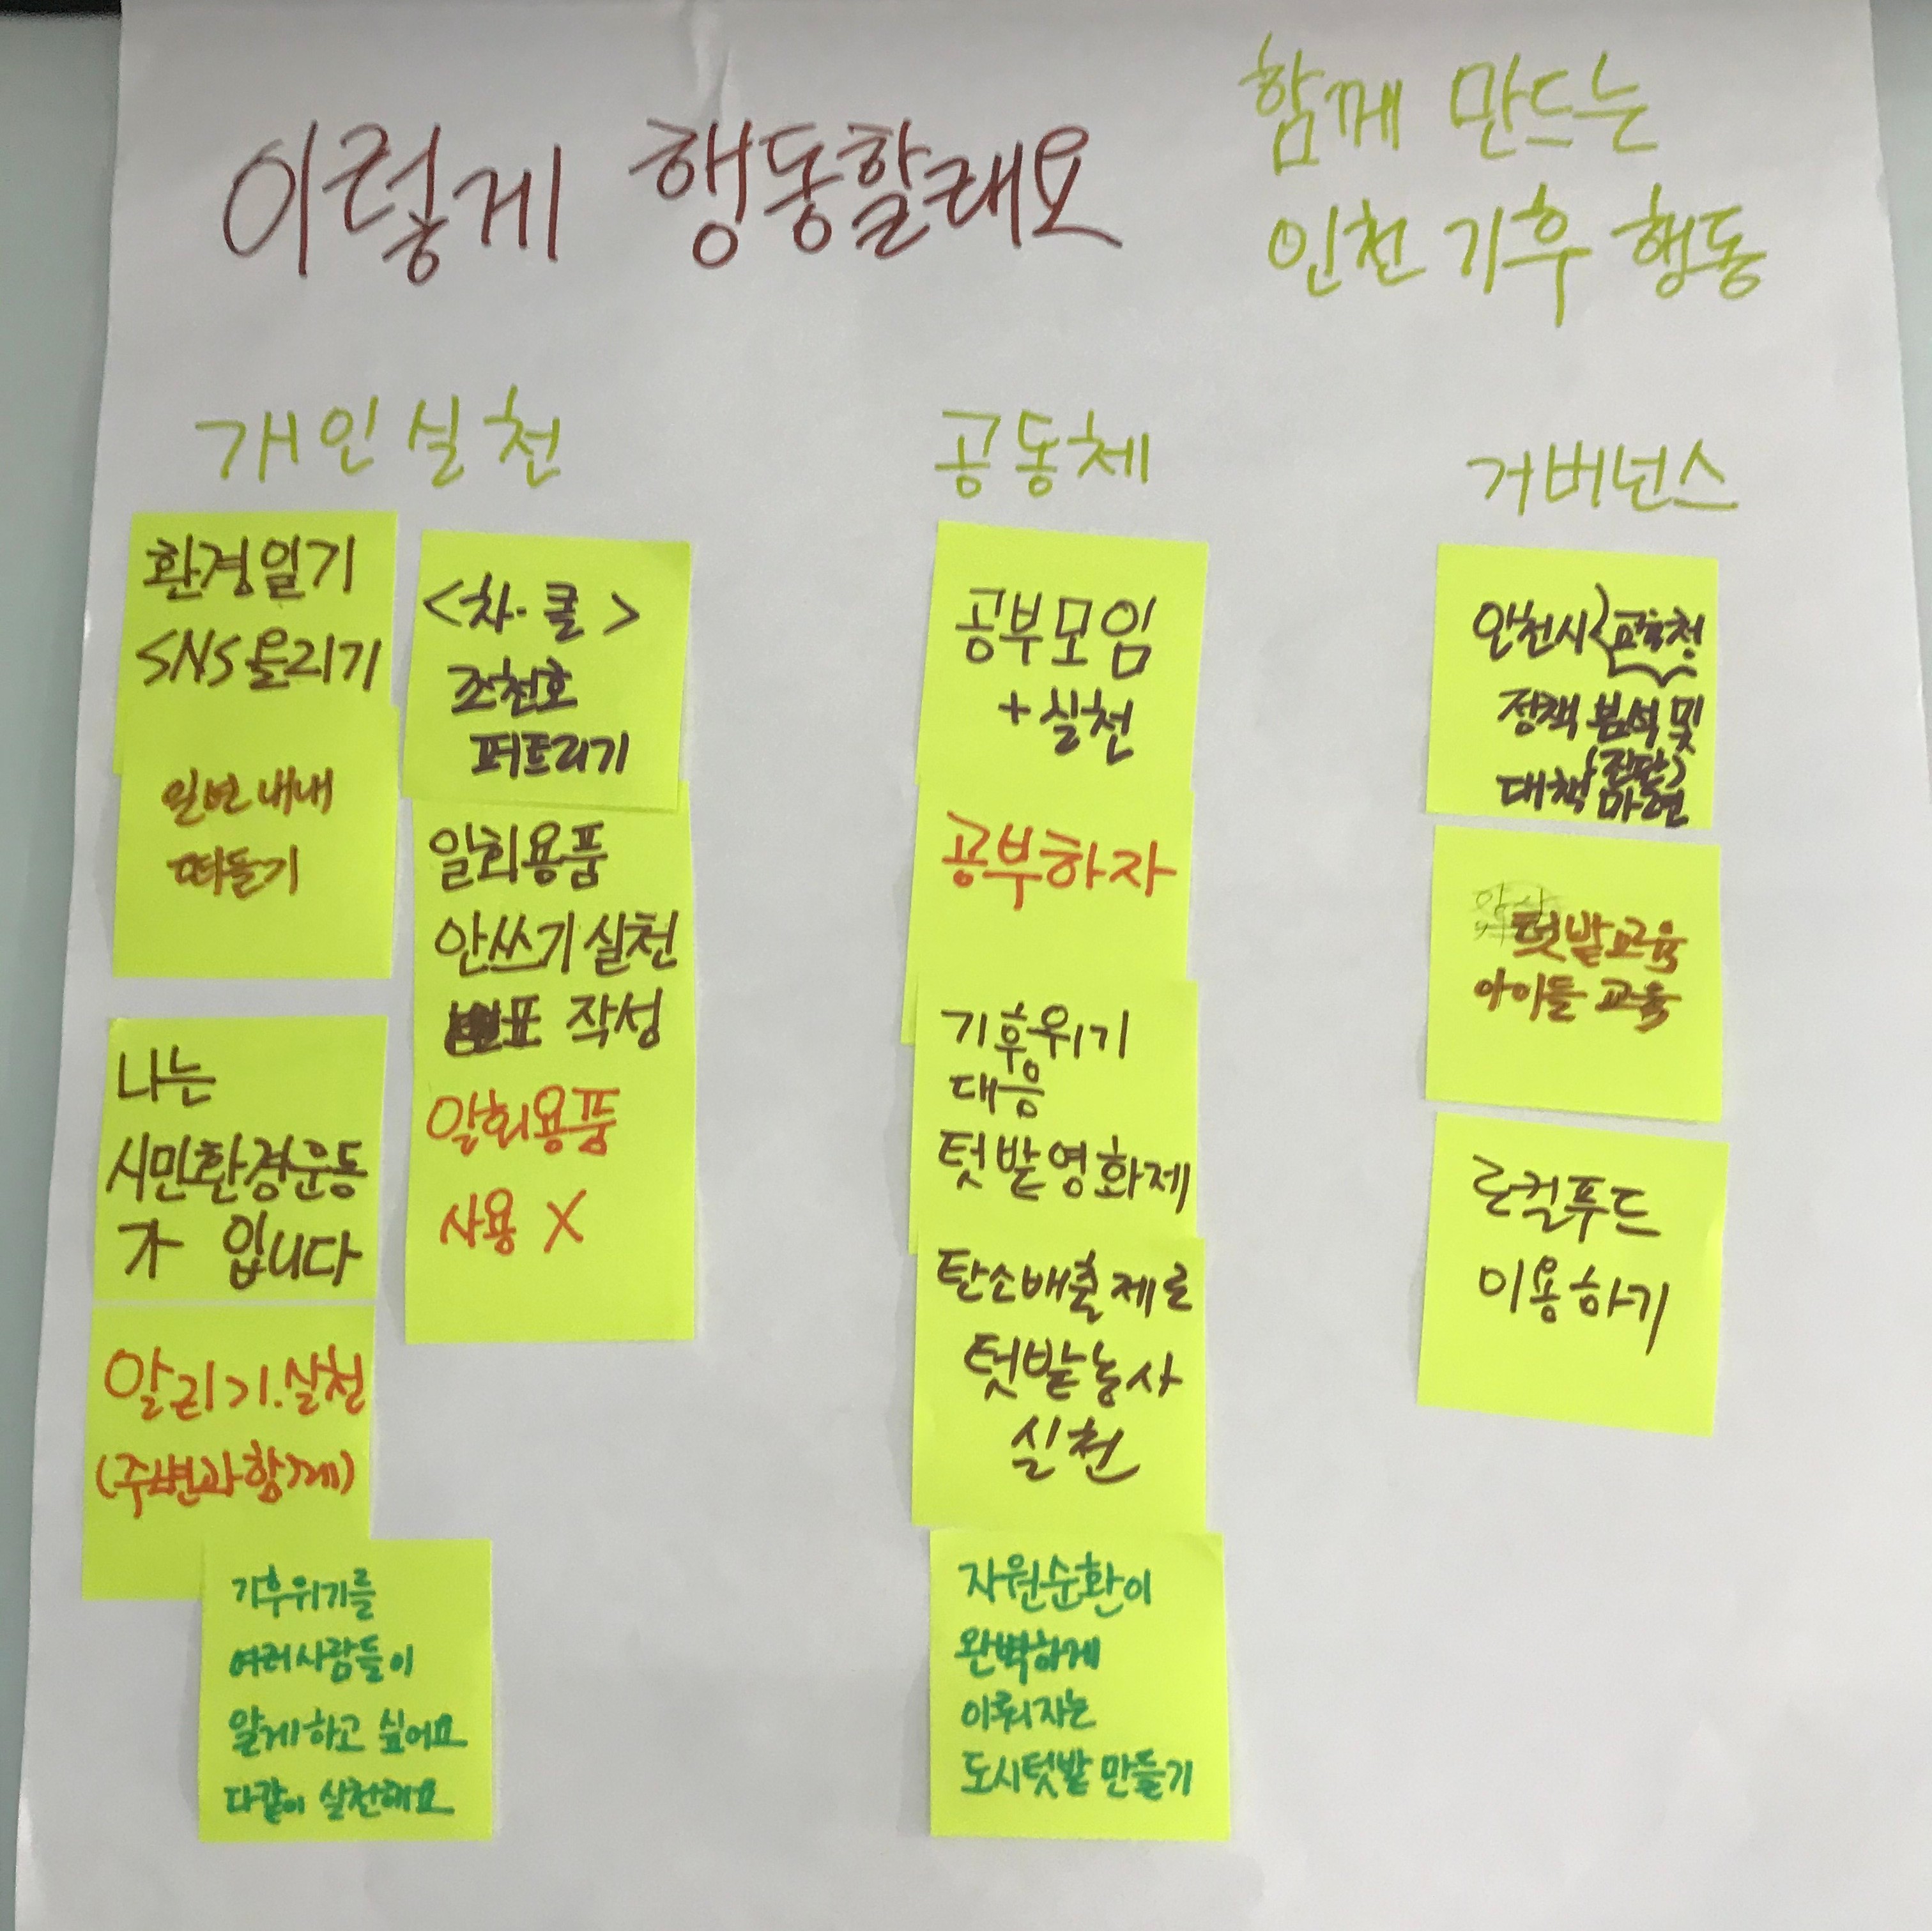 이렇게 행동할래요
함께 만드는
인천 기후 행동
개인실천
환경일기
SNS 올리기
일년내내
떠들기
나는
시민환경운동
가 입니다
알리기.실천
(주변과 함께)
기후위기를
여러사람들이
알게하고 싶어요
다같이 실천해요
<차·클>
조천호
퍼트리기
일회용품
안쓰기 실천
표 작성
일회용품
사용 X
공동체
공부모임
+ 실천
공부하자
기후위기
대응
텃밭영화제
탄소배출제로
텃밭농사
실천
자원순환이
완벽하게
이뤄지는
도시텃밭 만들기
거버넌스
인천시 교육청
정책 분석 및
대책 전달 마련
텃밭교육
아이들 교육
로컬푸드
이용하기